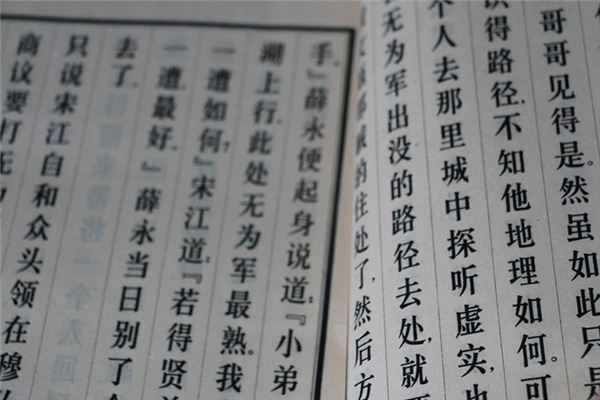 哥哥见得是。然虽如此只是
识得路径，不知他地理如何。可
个人去那里城中探听虚实，
无为军出没的路径去处，就
的住处了，然后方
手。』薛永便起身说道：『小弟
湖上行，此处无为军最熟。我
一遭如何？』宋江道：『若得贤
一遭最好。』薛永当日别了
去了。
只说宋江自和众头领在穆
商议要打无